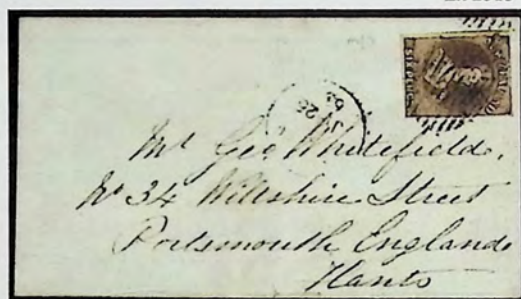 SIX PENCE
JA
25
Mr Geo Whitefield,
No 34 Wiltshire Street
Portsmouth England
Hants